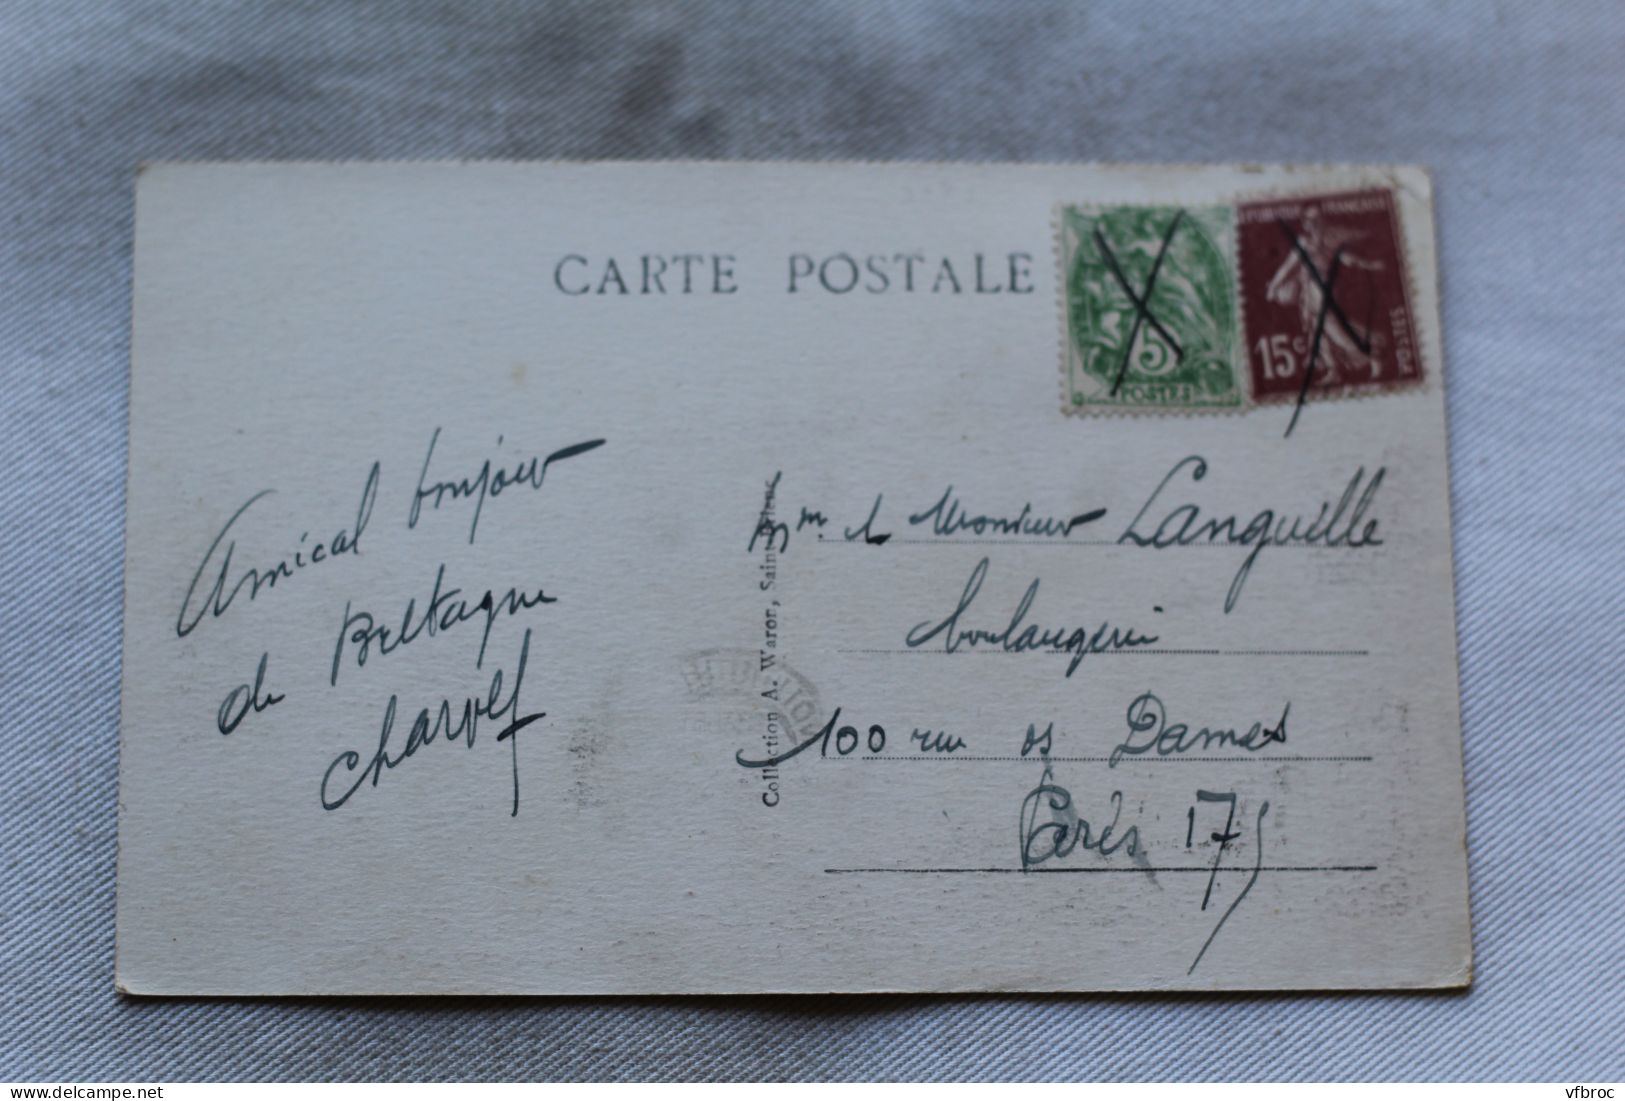 CARTE POSTALE
5
POSTES
FRANÇAISE
15c
POSTES
Amical bonjour
de Bretagne
Charvet
Collection A. Waron, Saint-Brieuc
Mme & Monsieur Languille
boulangerie
100 rue des Dames
Paris 17
www.delcampe.net
vfbroc